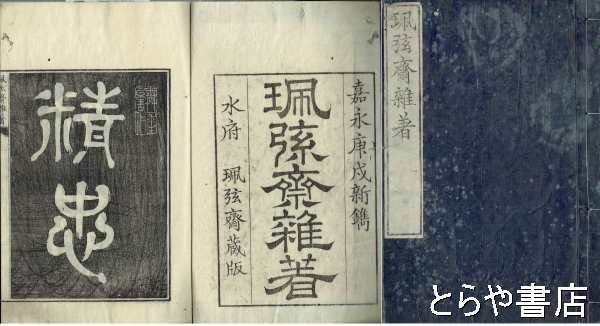 珮弦齋雜著
嘉永庚戌新鐫
珮弦齋雜著
水府 珮弦齋蔵版
精忠
とらや書店